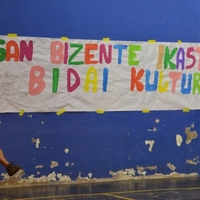 SAN BIZENTE IKAST
BIDAI KULTUR